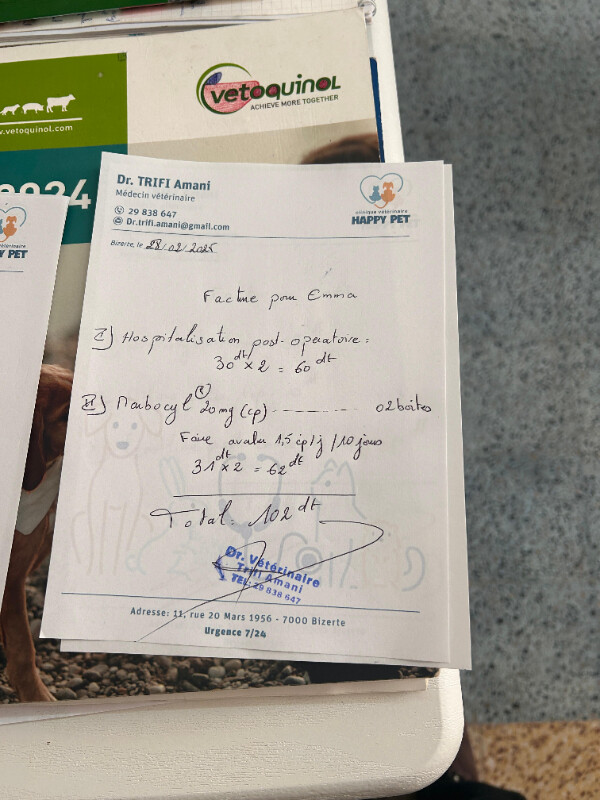 vetoquinol
ACHIEVE MORE TOGETHER
www.vetoquinol.com
2024
HAPPY PET
Dr. TRIFI Amani
Médecin vétérinaire
29 838 647
Dr.trifi.amani@gmail.com
clinique vétérinaire
HAPPY PET
Bizerte, le 28/02/2025
Facture pour Emma
I) Hospitalisation post-opératoire :
30 dt x 2 = 60 dt
II) Marbocyl ® 20mg (cp) ---------- 02 boites
Faire avaler 1,5 cp/j /10 jours
31 dt x 2 = 62 dt
Total: 102 dt
Dr. Vétérinaire
Trifi Amani
TEL: 29 838 647
Adresse: 11, rue 20 Mars 1956 - 7000 Bizerte
Urgence 7/24